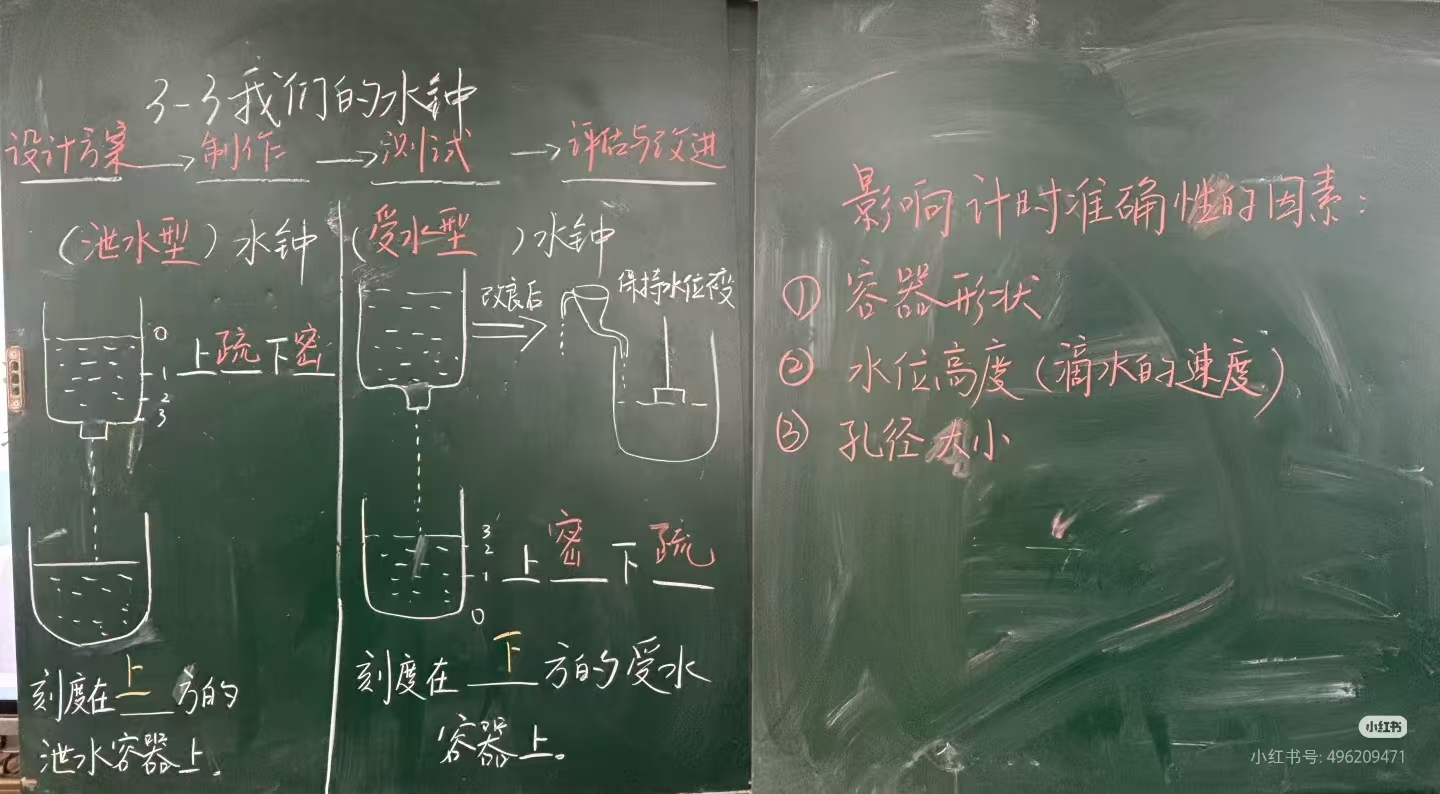 3-3我们的水钟
设计方案→制作→测试→评估与改进
（泄水型）水钟
0
1
2
3
上疏下密
刻度在上方的
泄水容器上。
（受水型）水钟
改良后
保持水位不变
3
2
1
0
上密下疏
刻度在下方的受水
容器上。
影响计时准确性的因素：
① 容器形状
② 水位高度（滴水的速度）
③ 孔径大小
小红书
小红书号: 496209471